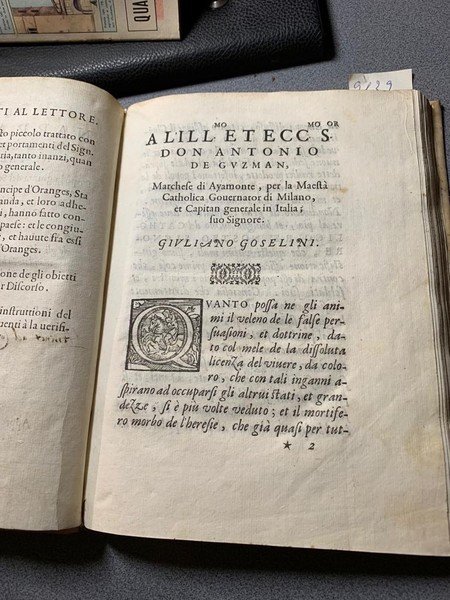 QUA
9/29
TI AL LETTORE,
sto piccolo trattato con
et portamenti del Sign.
ria, tanto inanzi, quan
o generale.
ncipe d'Oranges, Sta
anda, et loro adhe-
i, hanno fatto con-
paese: et le congiu-
, et hauute fra essi
Oranges.
ione de gli obietti
r Discorso.
instruttioni del
uenti à la uerifi-
MO MO OR
A L'ILL ET ECC S.
DON ANTONIO
DE GVZMAN,
Marchese di Ayamonte, per la Maestà
Catholica Gouernator di Milano,
et Capitan generale in Italia;
suo Signore.
GIVLIANO GOSELINI.
QVANTO possa ne gli ani-
mi il veleno de le false per-
suasioni, et dottrine, da-
to col mele de la dissoluta
licenza del viuere, da colo-
ro, che con tali inganni a-
spirano ad occuparsi gli altrui stati, et gran-
dezze, si è più volte veduto; et il mortife-
ro morbo de l'heresie, che già quasi per tut-
★ 2